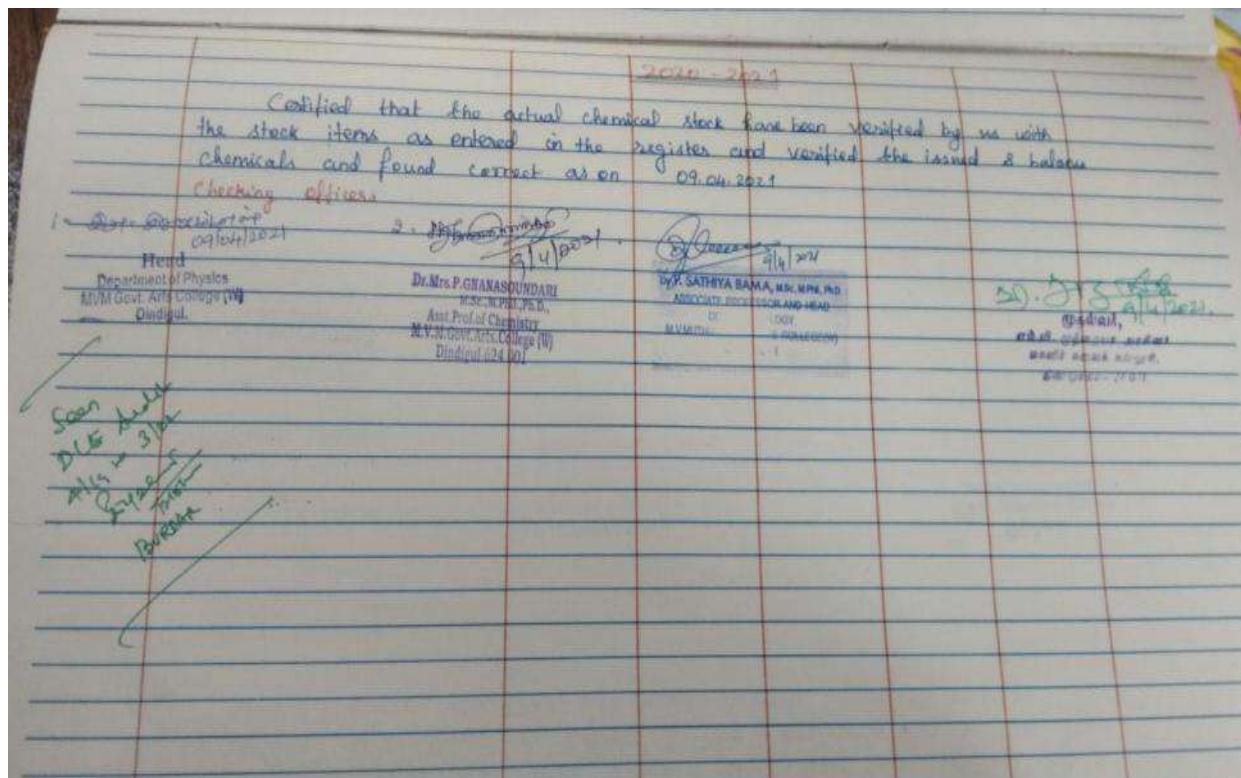 2020 - 2021
Certified that the actual chemical stock have been verified by us with
the stock items as entered in the register and verified the issued & balance
chemicals and found correct as on 09.04.2021
Checking officers.
1.
09/04/2021
Head
Department of Physics
MVM Govt. Arts College (W)
Dindigul.
2.
9/4/2021.
Dr.Mrs.P.GNANASOUNDARI
M.Sc.,M.Phil.,Ph.D.,
Asst.Prof.of Chemistry
M.V.M.Govt.Arts.College (W)
Dindigul 624 001
9/4/2021
Dr.P. SATHIYA BAMA, M.Sc. M.Phil, PhD
ASSOCIATE PROFESSOR AND HEAD
9/4/2021.
முதல்வர்,
Seen
DCE Audit
BURSAR